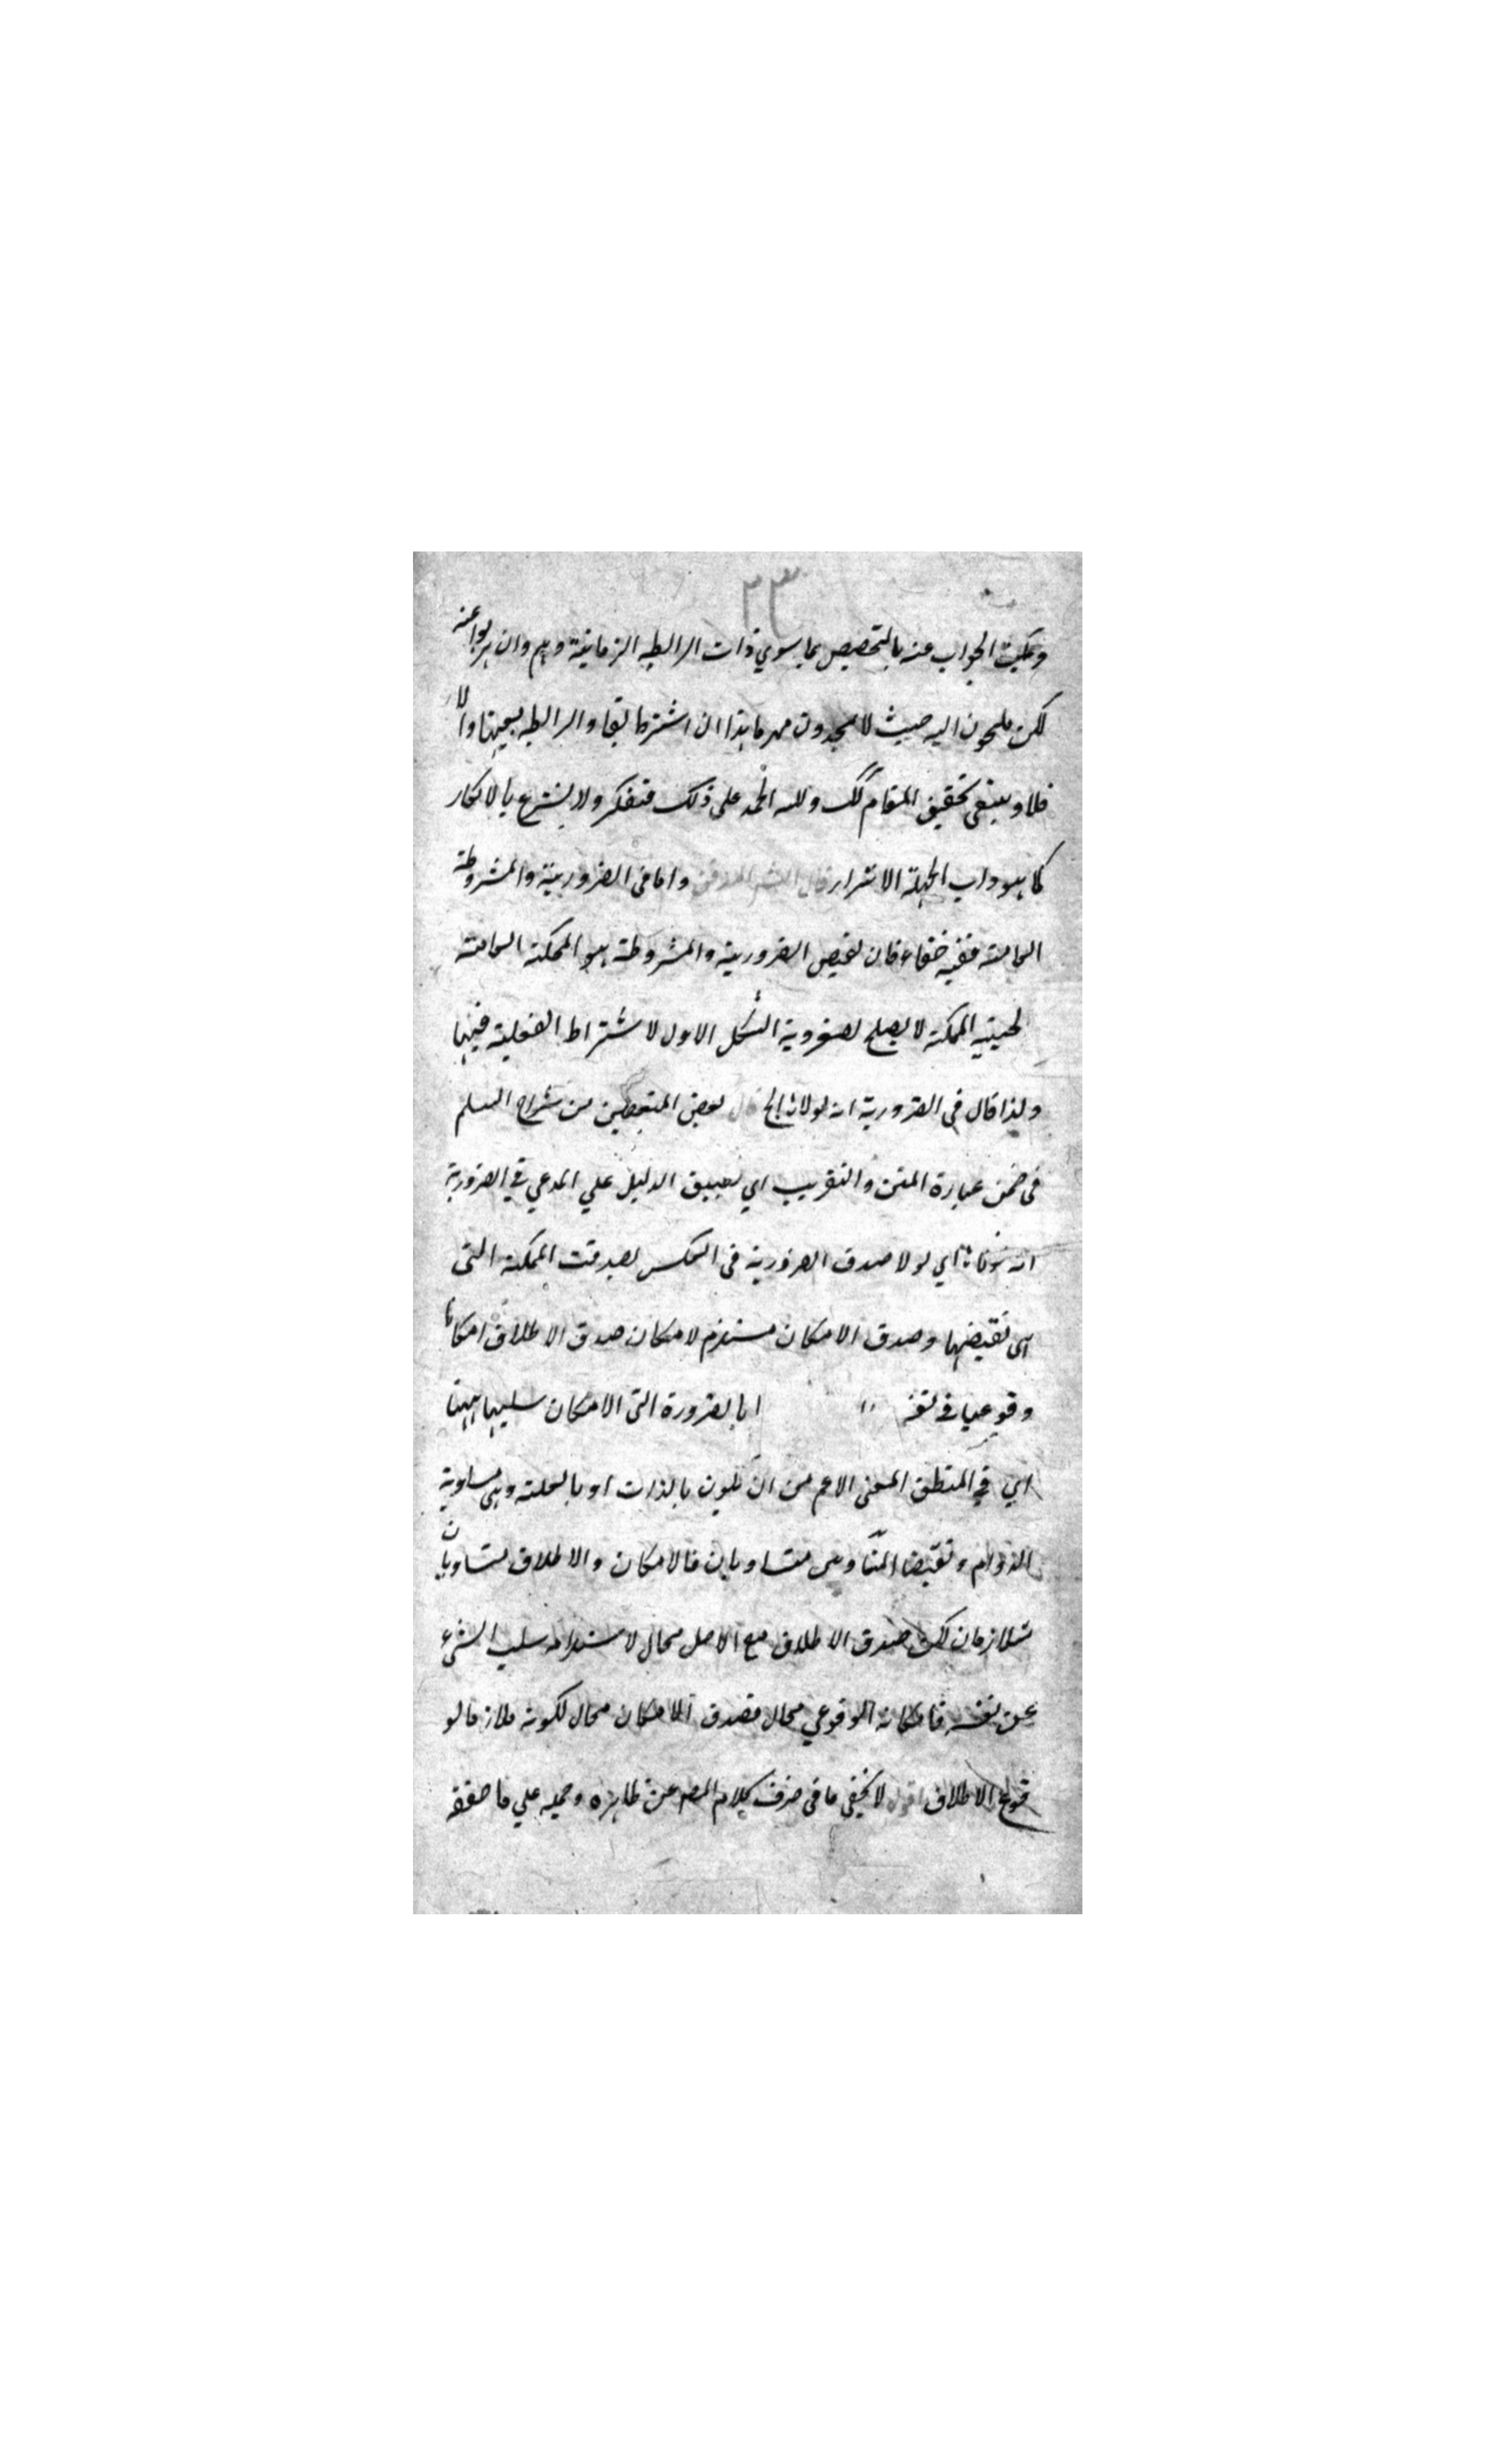 ٢٣
ويمكن الجواب عنه بالتخصيص بما سوي ذات الرابطه الزمانية وهم وان هربوا عنه
لكن ملجون اليه حيث لا يجدون مهربا هذا ان اشترط بقاء الرابطه بعينها والا
فلا وينبغي تحقيق المقام كك ولله الحمد على ذلك فتفكر ولا يتسرع بالانكار
كما هو داب الجهلة الاشرار قال الشر المدقق واما في الضرورية والمشروطة
العامة ففيه خفاء فان نقيض الضرورية والمشروطة هو الممكنة العامة
لحينية الممكنة لا يصلح لصغروية الشكل الاول لاشتراط الفعلية فيها
ولذا قال في الضرورية انه لولاه الخ قال بعض المتعمقين من شراح السلم
في ضمن عبارة المتن والتقريب اي تطبيق الدليل علي المدعي في الضرورية
انه اي لولا صدق الضرورية في العكس لصدقت الممكنة التي
هي نقيضها وصدق الامكان مستلزم لامكان صدق الاطلاق امكانا
وقوعيا في نفسه اما بالضرورة التي الامكان سلبها ههنا
اي في المنطق المعنى الاعم من ان تكون بالذات او بالعلة وهي مساوية
الدوام ونقيضا المتساويين متساويان فالامكان والاطلاق متساويان
متلازمان لكن صدق الاطلاق مع الاصل محال لاستلزامه سلب الشيء
عن نفسه فامكانه الوقوعي محال فصدق الامكان محال لكونه ملازما لو
قوع الاطلاق اقول لا يخفي ما في صرف كلام المص عن ظاهره وحمله علي ما حققه